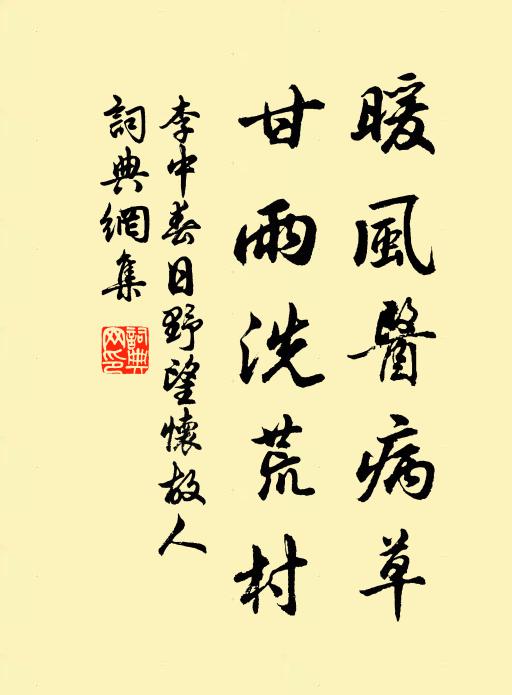 暖風醫病草
甘雨洗荒村
李中春日野望懷故人
詞典網集
詞典網印